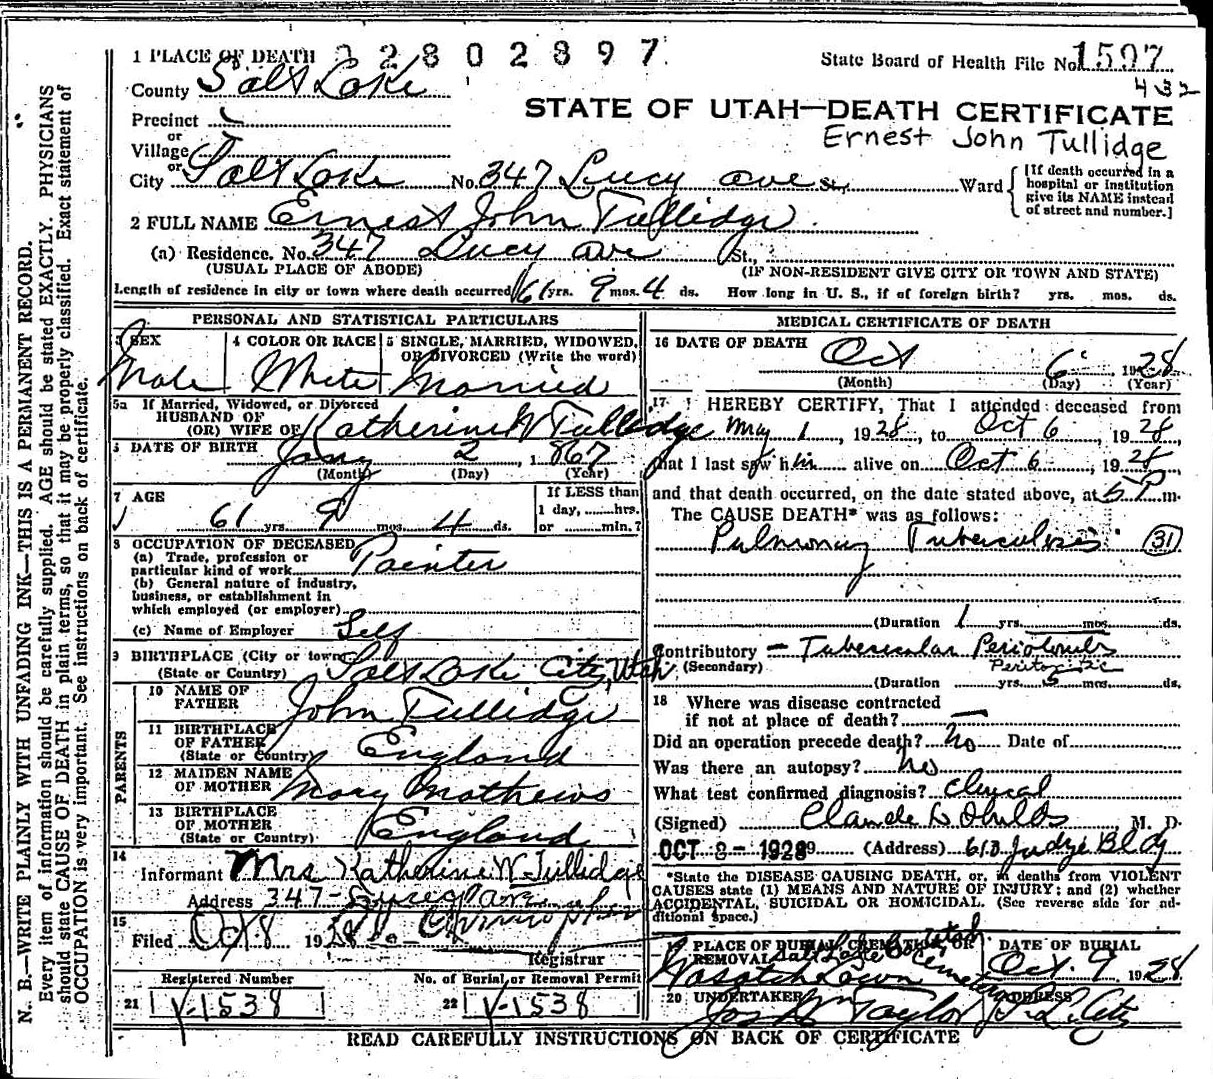 1 PLACE OF DEATH 2 2 8 0 2 8 9 7
State Board of Health File No. 1597
432
County Salt Lake
STATE OF UTAH—DEATH CERTIFICATE
Precinct
Ernest John Tullidge
or
Village
or
City Salt Lake No. 347 Lucy ave St., Ward
[If death occurred in a
hospital or institution
give its NAME instead
of street and number.]
2 FULL NAME Ernest John Tullidge
(a) Residence. No. 347 Lucy ave St.,
(USUAL PLACE OF ABODE) (IF NON-RESIDENT GIVE CITY OR TOWN AND STATE)
Length of residence in city or town where death occurred 61 yrs. 9 mos. 4 ds. How long in U. S., if of foreign birth? yrs. mos. ds.
PERSONAL AND STATISTICAL PARTICULARS
3 SEX
Male
4 COLOR OR RACE
White
5 SINGLE, MARRIED, WIDOWED,
OR DIVORCED (Write the word)
Married
5a If Married, Widowed, or Divorced
HUSBAND OF
(OR) WIFE OF Katherine W Tullidge
6 DATE OF BIRTH Jany 2, 1867
(Month) (Day) (Year)
7 AGE
61 yrs. 9 mos. 4 ds.
If LESS than
1 day, hrs.
or min.?
8 OCCUPATION OF DECEASED
(a) Trade, profession or
particular kind of work Painter
(b) General nature of industry,
business, or establishment in
which employed (or employer)
(c) Name of Employer Self
9 BIRTHPLACE (City or town)
(State or Country) Salt Lake City, Utah
PARENTS
10 NAME OF
FATHER John Tullidge
11 BIRTHPLACE
OF FATHER
(State or Country) England
12 MAIDEN NAME
OF MOTHER Mary Mathews
13 BIRTHPLACE
OF MOTHER
(State or Country) England
14
Informant Mrs Katherine W. Tullidge
Address 347
15
Filed Oct 8 1928
Registrar
Registered Number No. of Burial or Removal Permit
21 V-1538 22 V-1538
MEDICAL CERTIFICATE OF DEATH
16 DATE OF DEATH
Oct 6 1928
(Month) (Day) (Year)
17 I HEREBY CERTIFY, That I attended deceased from
May 1, 1928, to Oct 6, 1928,
that I last saw him alive on Oct 6, 1928
and that death occurred, on the date stated above, at 5 P m.
The CAUSE DEATH* was as follows:
Pulmonary Tuberculosis (31)
(Duration 1 yrs. mos. ds.
Contributory — Tubercular
(Secondary)
(Duration yrs. 5 mos. ds.
18 Where was disease contracted
if not at place of death? —
Did an operation precede death? no Date of
Was there an autopsy? no
What test confirmed diagnosis? Clinical
(Signed) Claude L Shields M. D.
OCT 8 - 1928 (Address) 613 Judge Bldg
*State the DISEASE CAUSING DEATH, or, in deaths from VIOLENT
CAUSES state (1) MEANS AND NATURE OF INJURY; and (2) whether
ACCIDENTAL, SUICIDAL OR HOMICIDAL. (See reverse side for ad-
ditional space.)
19 PLACE OF BURIAL, CREMATION, OR
REMOVAL Salt Lake Co Utah
Wasatch Lawn Cemetery
DATE OF BURIAL
Oct. 9 1928
20 UNDERTAKER ADDRESS
Jos Wm Taylor S. L. City
READ CAREFULLY INSTRUCTIONS ON BACK OF CERTIFICATE
N. B.—WRITE PLAINLY WITH UNFADING INK—THIS IS A PERMANENT RECORD.
Every item of information should be carefully supplied. AGE should be stated EXACTLY. PHYSICIANS
should state CAUSE OF DEATH in plain terms, so that it may be properly classified. Exact statement of
OCCUPATION is very important. See instructions on back of certificate.